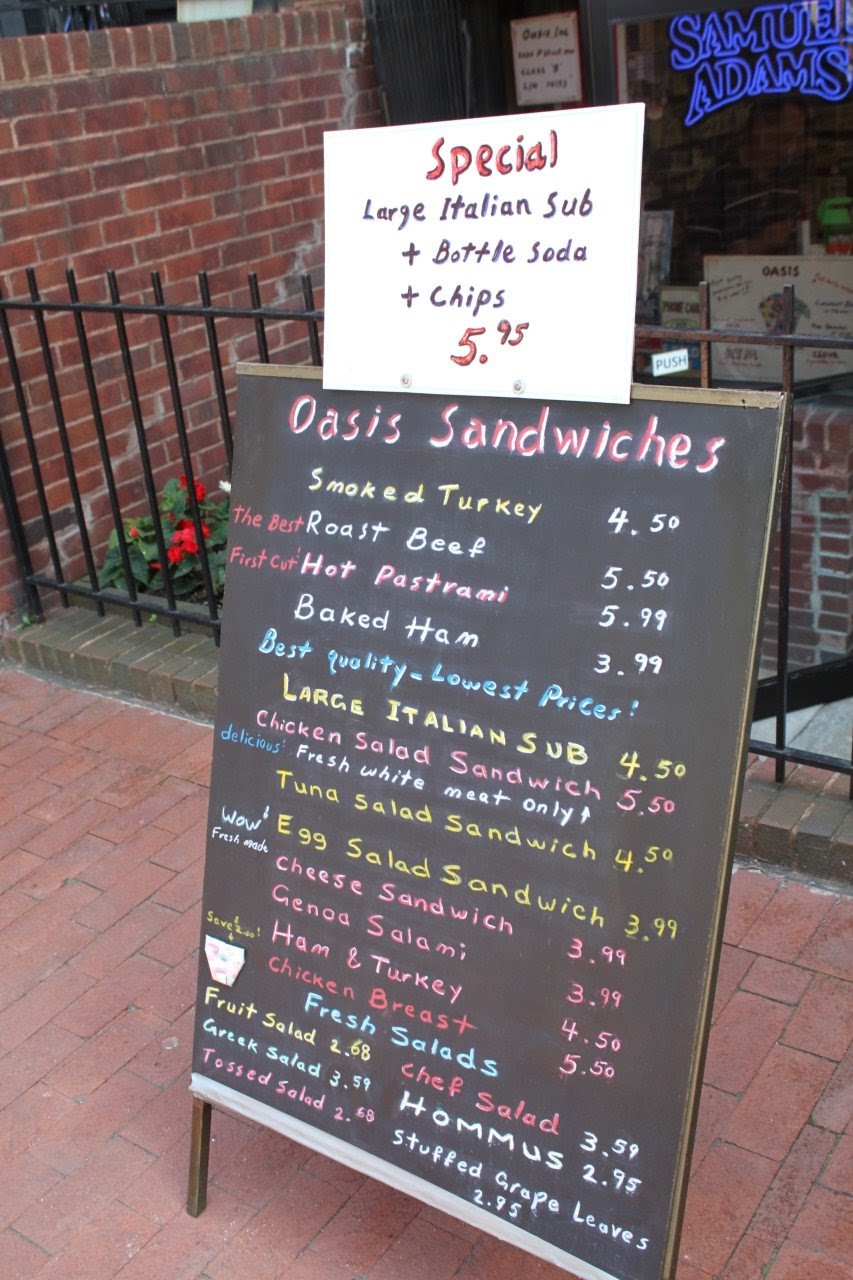 SAMUEL
ADAMS
OASIS INC
CLASS "B"
Special
Large Italian Sub
+ Bottle soda
+ Chips
5.95
OASIS
PUSH
ATM
Oasis Sandwiches
Smoked Turkey 4.50
The Best Roast Beef 5.50
First Cut! Hot Pastrami 5.99
Baked Ham 3.99
Best quality-Lowest Prices!
LARGE ITALIAN SUB 4.50
Chicken Salad Sandwich 5.50
delicious! Fresh white meat only↑
Tuna salad Sandwich 4.50
WOW! Egg Salad Sandwich 3.99
Fresh made
Cheese Sandwich 3.99
Genoa Salami 3.99
Ham & Turkey 4.50
Chicken Breast 5.50
Save
Fresh Salads
Fruit Salad 2.68
Greek Salad 3.59
Tossed Salad 2.68
Chef Salad 3.59
HOMMUS 2.95
Stuffed Grape Leaves
2.95